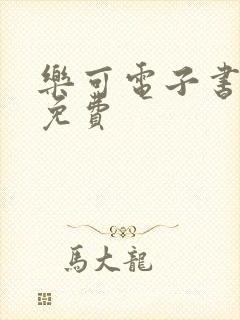 樂可電子書
免費
馬大龍